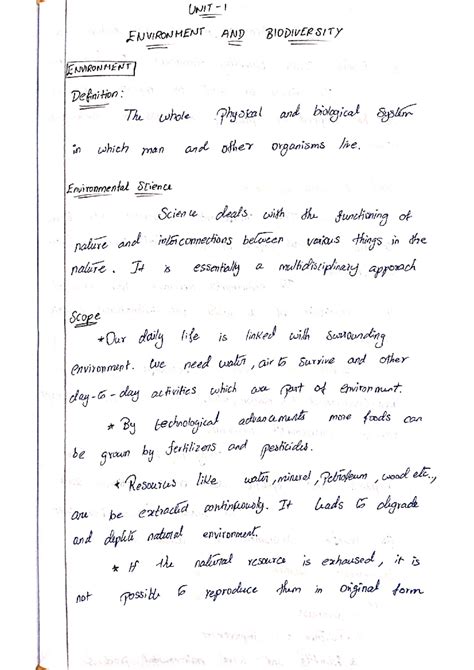 UNIT-1
ENVIRONMENT AND BIODIVERSITY
ENVIRONMENT
Definition:
The whole physical and biological system
in which man and other organisms live.
Environmental Science
Science deals with the functioning of
nature and interconnections between various things in the
nature. It is essentially a multidisciplinary approach
Scope
* Our daily life is linked with surrounding
environment. We need water, air to survive and other
day-to-day activities which are part of environment.
* By technological advancements more foods can
be grown by fertilizers and pesticides.
* Resources like water, mineral, petroleum, wood etc..,
are be extracted continuously. It leads to degrade
and deplete natural environment.
* If the natural resource is exhaused, it is
not possible to reproduce them in original form